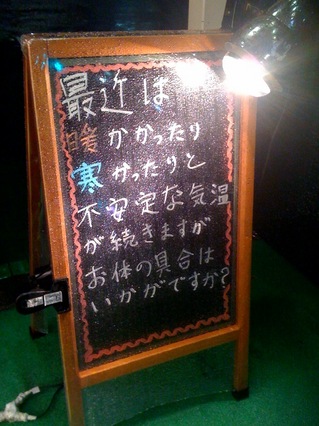 最近は
暖かかったり
寒かったりと
不安定な気温
が続きますが
お体の具合は
いかがですか?